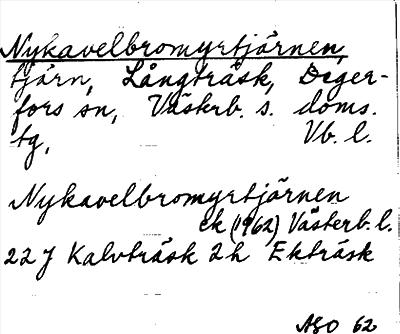 Nykavelbromyrtjärnen,
tjärn, Långträsk, Deger-
fors sn, Västerb. s. doms.
tg, Vb. l.
Nykavelbromyrtjärnen
ek (1962) Västerb. l.
22 J Kalvträsk 2 h Ekträsk
ASO 62